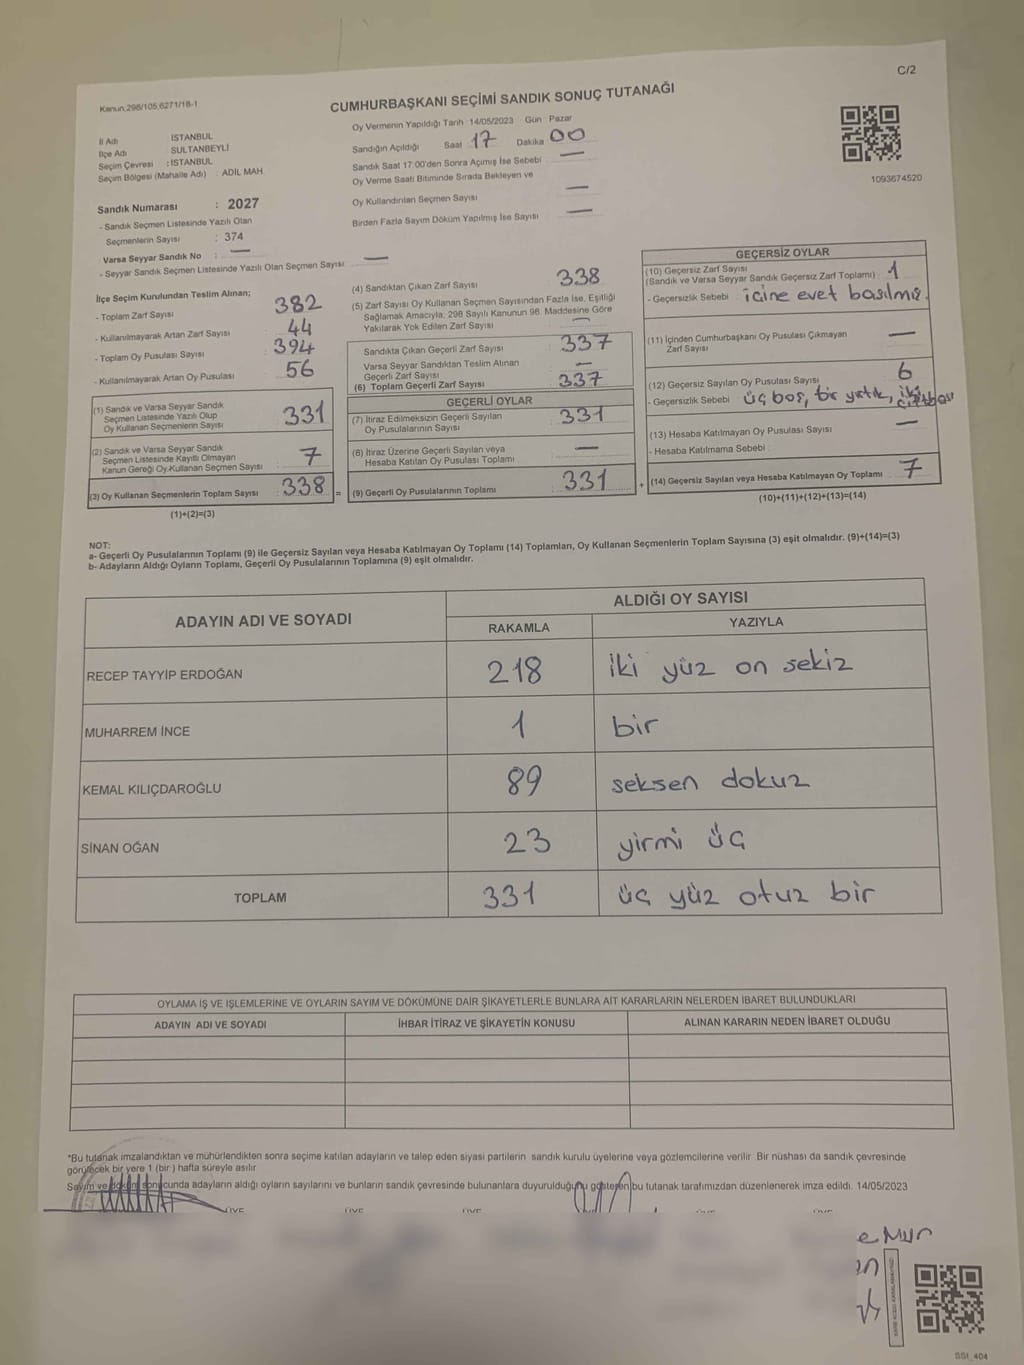 C/2
Kanun.298/105,6271/18-1
CUMHURBAŞKANI SEÇİMİ SANDIK SONUÇ TUTANAĞI
İl Adı İSTANBUL
İlçe Adı SULTANBEYLİ
Seçim Çevresi : İSTANBUL
Seçim Bölgesi (Mahalle Adı) : ADİL MAH.
Sandık Numarası : 2027
- Sandık Seçmen Listesinde Yazılı Olan
Seçmenlerin Sayısı : 374
Varsa Seyyar Sandık No : —
- Seyyar Sandık Seçmen Listesinde Yazılı Olan Seçmen Sayısı —
Oy Vermenin Yapıldığı Tarih 14/05/2023 Gün Pazar
Sandığın Açıldığı Saat 17 Dakika 00
Sandık Saat 17:00'den Sonra Açımış İse Sebebi —
Oy Verme Saati Bitiminde Sırada Bekleyen ve
Oy Kullandırılan Seçmen Sayısı —
Birden Fazla Sayım Döküm Yapılmış İse Sayısı —
1093674520
İlçe Seçim Kurulundan Teslim Alınan;
- Toplam Zarf Sayısı 382
- Kullanılmayarak Artan Zarf Sayısı 44
- Toplam Oy Pusulası Sayısı 394
- Kullanılmayarak Artan Oy Pusulası 56
(1) Sandık ve Varsa Seyyar Sandık
Seçmen Listesinde Yazılı Olup
Oy Kullanan Seçmenlerin Sayısı 331
(2) Sandık ve Varsa Seyyar Sandık
Seçmen Listesinde Kayıtlı Olmayan
Kanun Gereği Oy Kullanan Seçmen Sayısı 7
(3) Oy Kullanan Seçmenlerin Toplam Sayısı 338 =
(1)+(2)=(3)
(4) Sandıktan Çıkan Zarf Sayısı 338
(5) Zarf Sayısı Oy Kullanan Seçmen Sayısından Fazla İse, Eşitliği
Sağlamak Amacıyla, 298 Sayılı Kanunun 98. Maddesine Göre
Yakılarak Yok Edilen Zarf Sayısı —
Sandıkta Çıkan Geçerli Zarf Sayısı 337
Varsa Seyyar Sandıktan Teslim Alınan
Geçerli Zarf Sayısı —
(6) Toplam Geçerli Zarf Sayısı 337
GEÇERLİ OYLAR
(7) İtiraz Edilmeksizin Geçerli Sayılan
Oy Pusulalarının Sayısı 331
(8) İtiraz Üzerine Geçerli Sayılan veya
Hesaba Katılan Oy Pusulası Toplamı —
(9) Geçerli Oy Pusulalarının Toplamı 331 +
GEÇERSİZ OYLAR
(10) Geçersiz Zarf Sayısı
(Sandık ve Varsa Seyyar Sandık Geçersiz Zarf Toplamı) : 1
- Geçersizlik Sebebi : içine evet basılmış.
(11) İçinden Cumhurbaşkanı Oy Pusulası Çıkmayan
Zarf Sayısı —
(12) Geçersiz Sayılan Oy Pusulası Sayısı 6
- Geçersizlik Sebebi : üç boş, bir yırtık, iki
(13) Hesaba Katılmayan Oy Pusulası Sayısı —
- Hesaba Katılmama Sebebi
(14) Geçersiz Sayılan veya Hesaba Katılmayan Oy Toplamı 7
(10)+(11)+(12)+(13)=(14)
NOT:
a- Geçerli Oy Pusulalarının Toplamı (9) ile Geçersiz Sayılan veya Hesaba Katılmayan Oy Toplamı (14) Toplamları, Oy Kullanan Seçmenlerin Toplam Sayısına (3) eşit olmalıdır. (9)+(14)=(3)
b- Adayların Aldığı Oyların Toplamı, Geçerli Oy Pusulalarının Toplamına (9) eşit olmalıdır.
ADAYIN ADI VE SOYADI
ALDIĞI OY SAYISI
RAKAMLA YAZIYLA
RECEP TAYYİP ERDOĞAN 218 iki yüz on sekiz
MUHARREM İNCE 1 bir
KEMAL KILIÇDAROĞLU 89 seksen dokuz
SİNAN OĞAN 23 yirmi üç
TOPLAM 331 üç yüz otuz bir
OYLAMA İŞ VE İŞLEMLERİNE VE OYLARIN SAYIM VE DÖKÜMÜNE DAİR ŞİKAYETLERLE BUNLARA AİT KARARLARIN NELERDEN İBARET BULUNDUKLARI
ADAYIN ADI VE SOYADI İHBAR İTİRAZ VE ŞİKAYETİN KONUSU ALINAN KARARIN NEDEN İBARET OLDUĞU
*Bu tutanak imzalandıktan ve mühürlendikten sonra seçime katılan adayların ve talep eden siyasi partilerin sandık kurulu üyelerine veya gözlemcilerine verilir. Bir nüshası da sandık çevresinde
görülecek bir yere 1 (bir ) hafta süreyle asılır
Sayım ve döküm sonucunda adayların aldığı oyların sayılarını ve bunların sandık çevresinde bulunanlara duyurulduğunu gösteren bu tutanak tarafımızdan düzenlenerek imza edildi. 14/05/2023
ÜYE ÜYE ÜYE
SSI_404